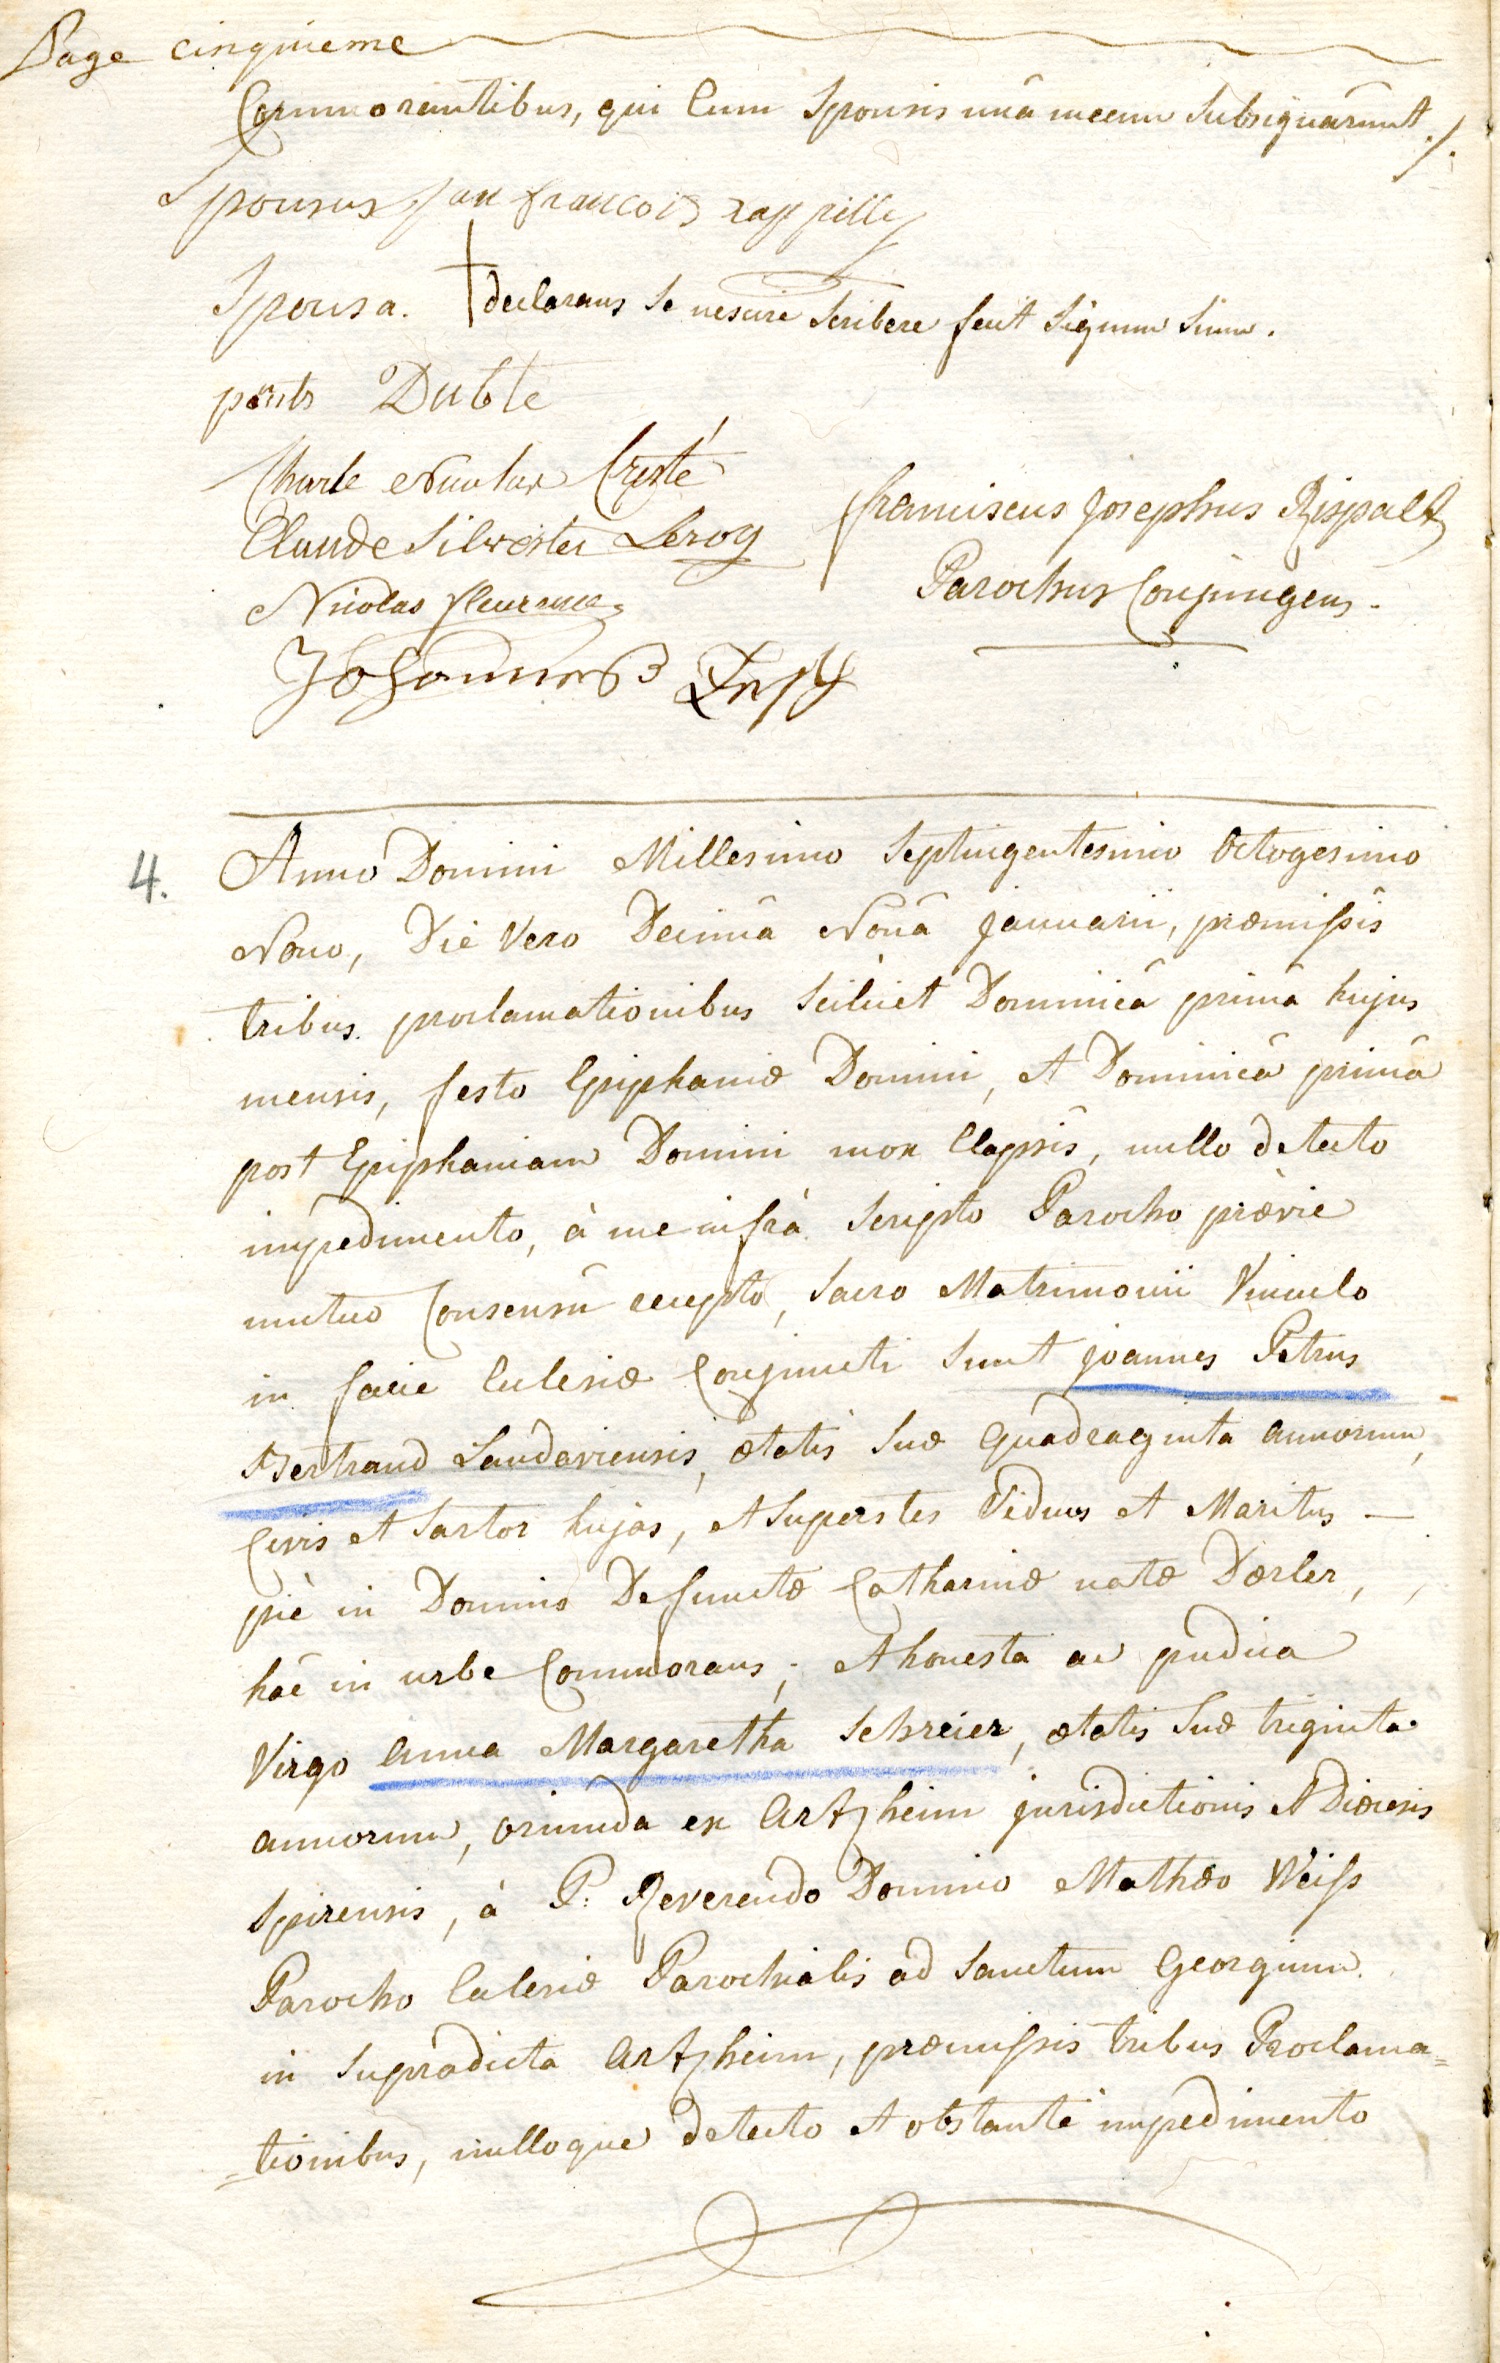 Page cinquieme
Commorantibus, qui Cum Sponsis unâ mecum Subsignârunt ./.
Sponsus jan francois
Sponsa. † declarans Se nescire Scribere fecit Signum Suum.
Duble
Charle Nicolas Cresté
Claude Silvester Leroy
franciscus josephus Rispalt
Nicolas fleurence
Parochus Conjungens.
Johannes
4. Anno Domini Millesimo Septingentesimo Octogesimo
Nono, Die Vero Decimâ Nonâ januarii, præmissis
tribus proclamationibus Scilicet Dominicâ primâ hujus
mensis, festo Epiphaniæ Domini, et Dominicâ primâ
post Epiphaniam Domini mox Elapsis, nullo detecto
impedimento, à me infrà Scripto Parocho prævie
mutuo Consensû recepto, Sacro Matrimonii Vinculo
in facie Ecclesiæ Conjuncti Sunt joannes Petrus
Bertrand Landaviensis, ætatis Suæ Quadraginta annorum,
Civis et Sartor hujas, et Superstes Viduus et Maritus —
piè in Domino Defunctæ Catharinæ natæ Dærler,
hâc in urbe Commorans; et honesta ac pudica
Virgo Anna Margaretha Schreier, ætatis Suæ triginta
annorum, oriunda ex Artzheim jurisdictionis et Diœcesis
Spirensis, à P. Reverendo Domino Mathæo Weiss
Parocho Ecclesiæ Parochialis ad Sanctum Georgium
in Supradicta Artzheim, præmissis tribus Proclama=
=tionibus, nulloque detecto et obstante impedimento